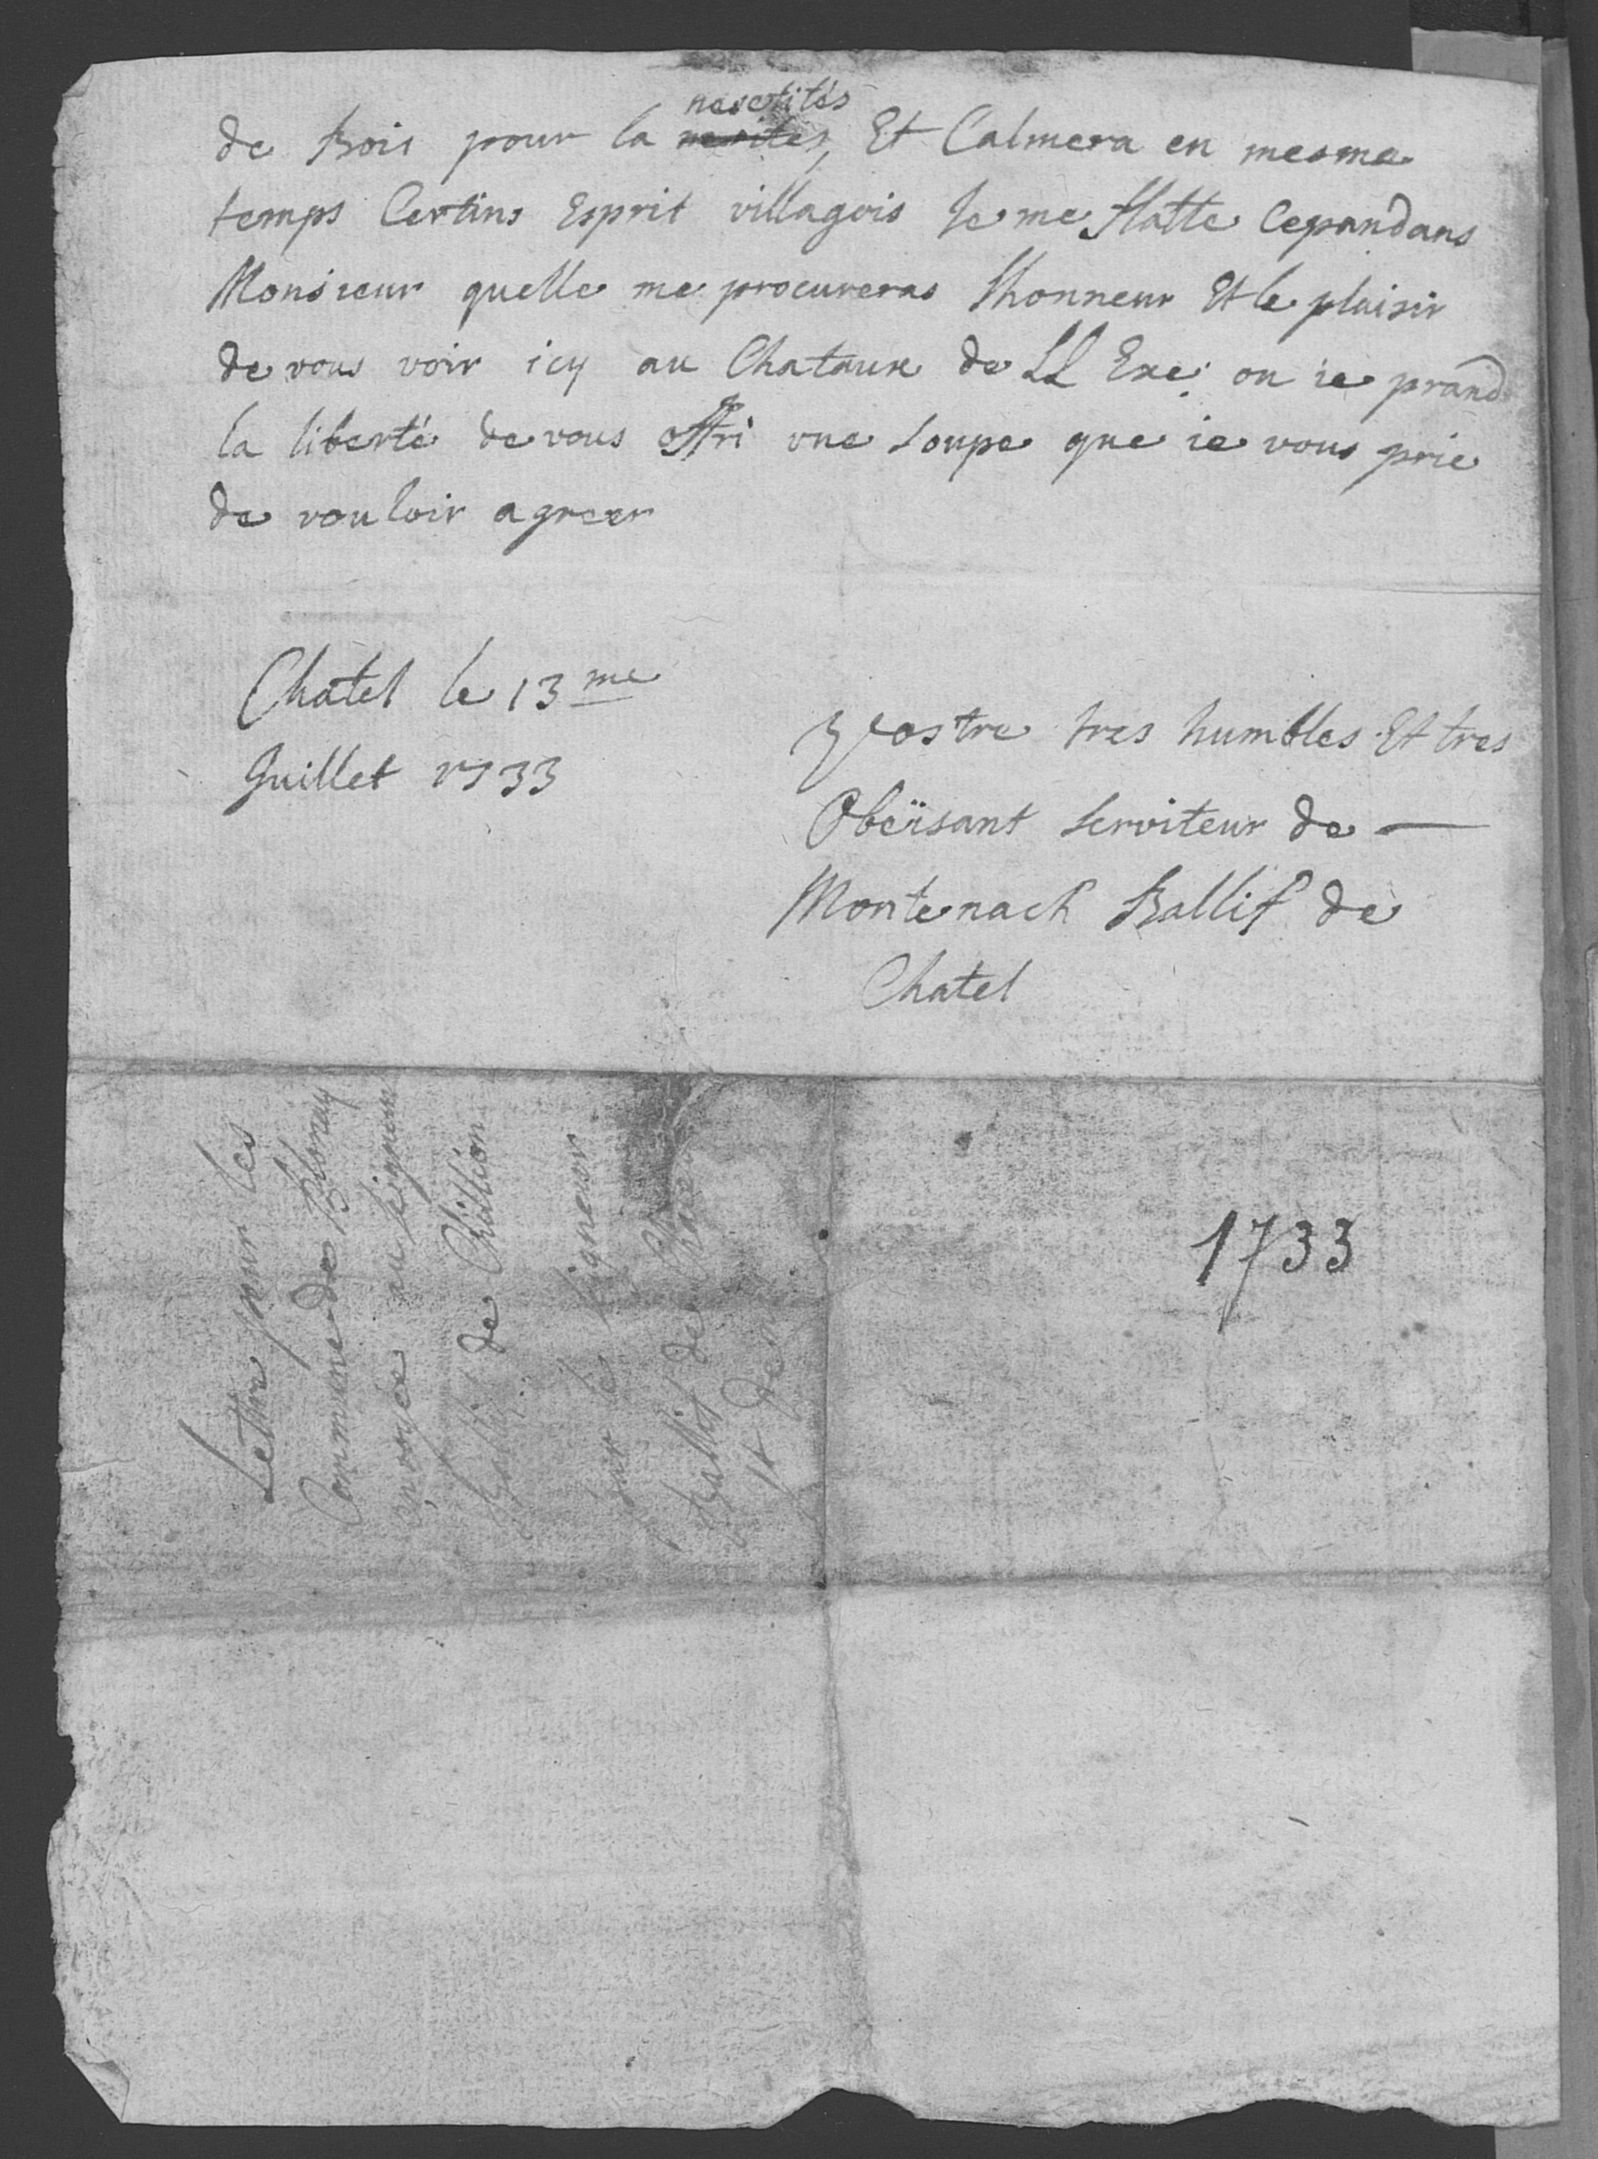 nesestités
de Bois pour la merites, Et Calmera en mesme
temps Certins Esprit villagois Je me flatte Cepandans
Monsieur quelle me procureras lhonneur Et le plaisir
de vous voir icy au Chataux de LL Exe: ou ie prand
la liberté de vous offri une soupe que ie vous prie
de vouloir agreer
Chatel le 13me
Juillet 1733
Vostre tres humbles Et tres
Obeïsant serviteur de —
Montenach Ballif de
Chatel
Lettre pour les
Commune de Blonay
envoyée au seigneur
Ballif de Chillion
par le seigneur
Ballif de
1733